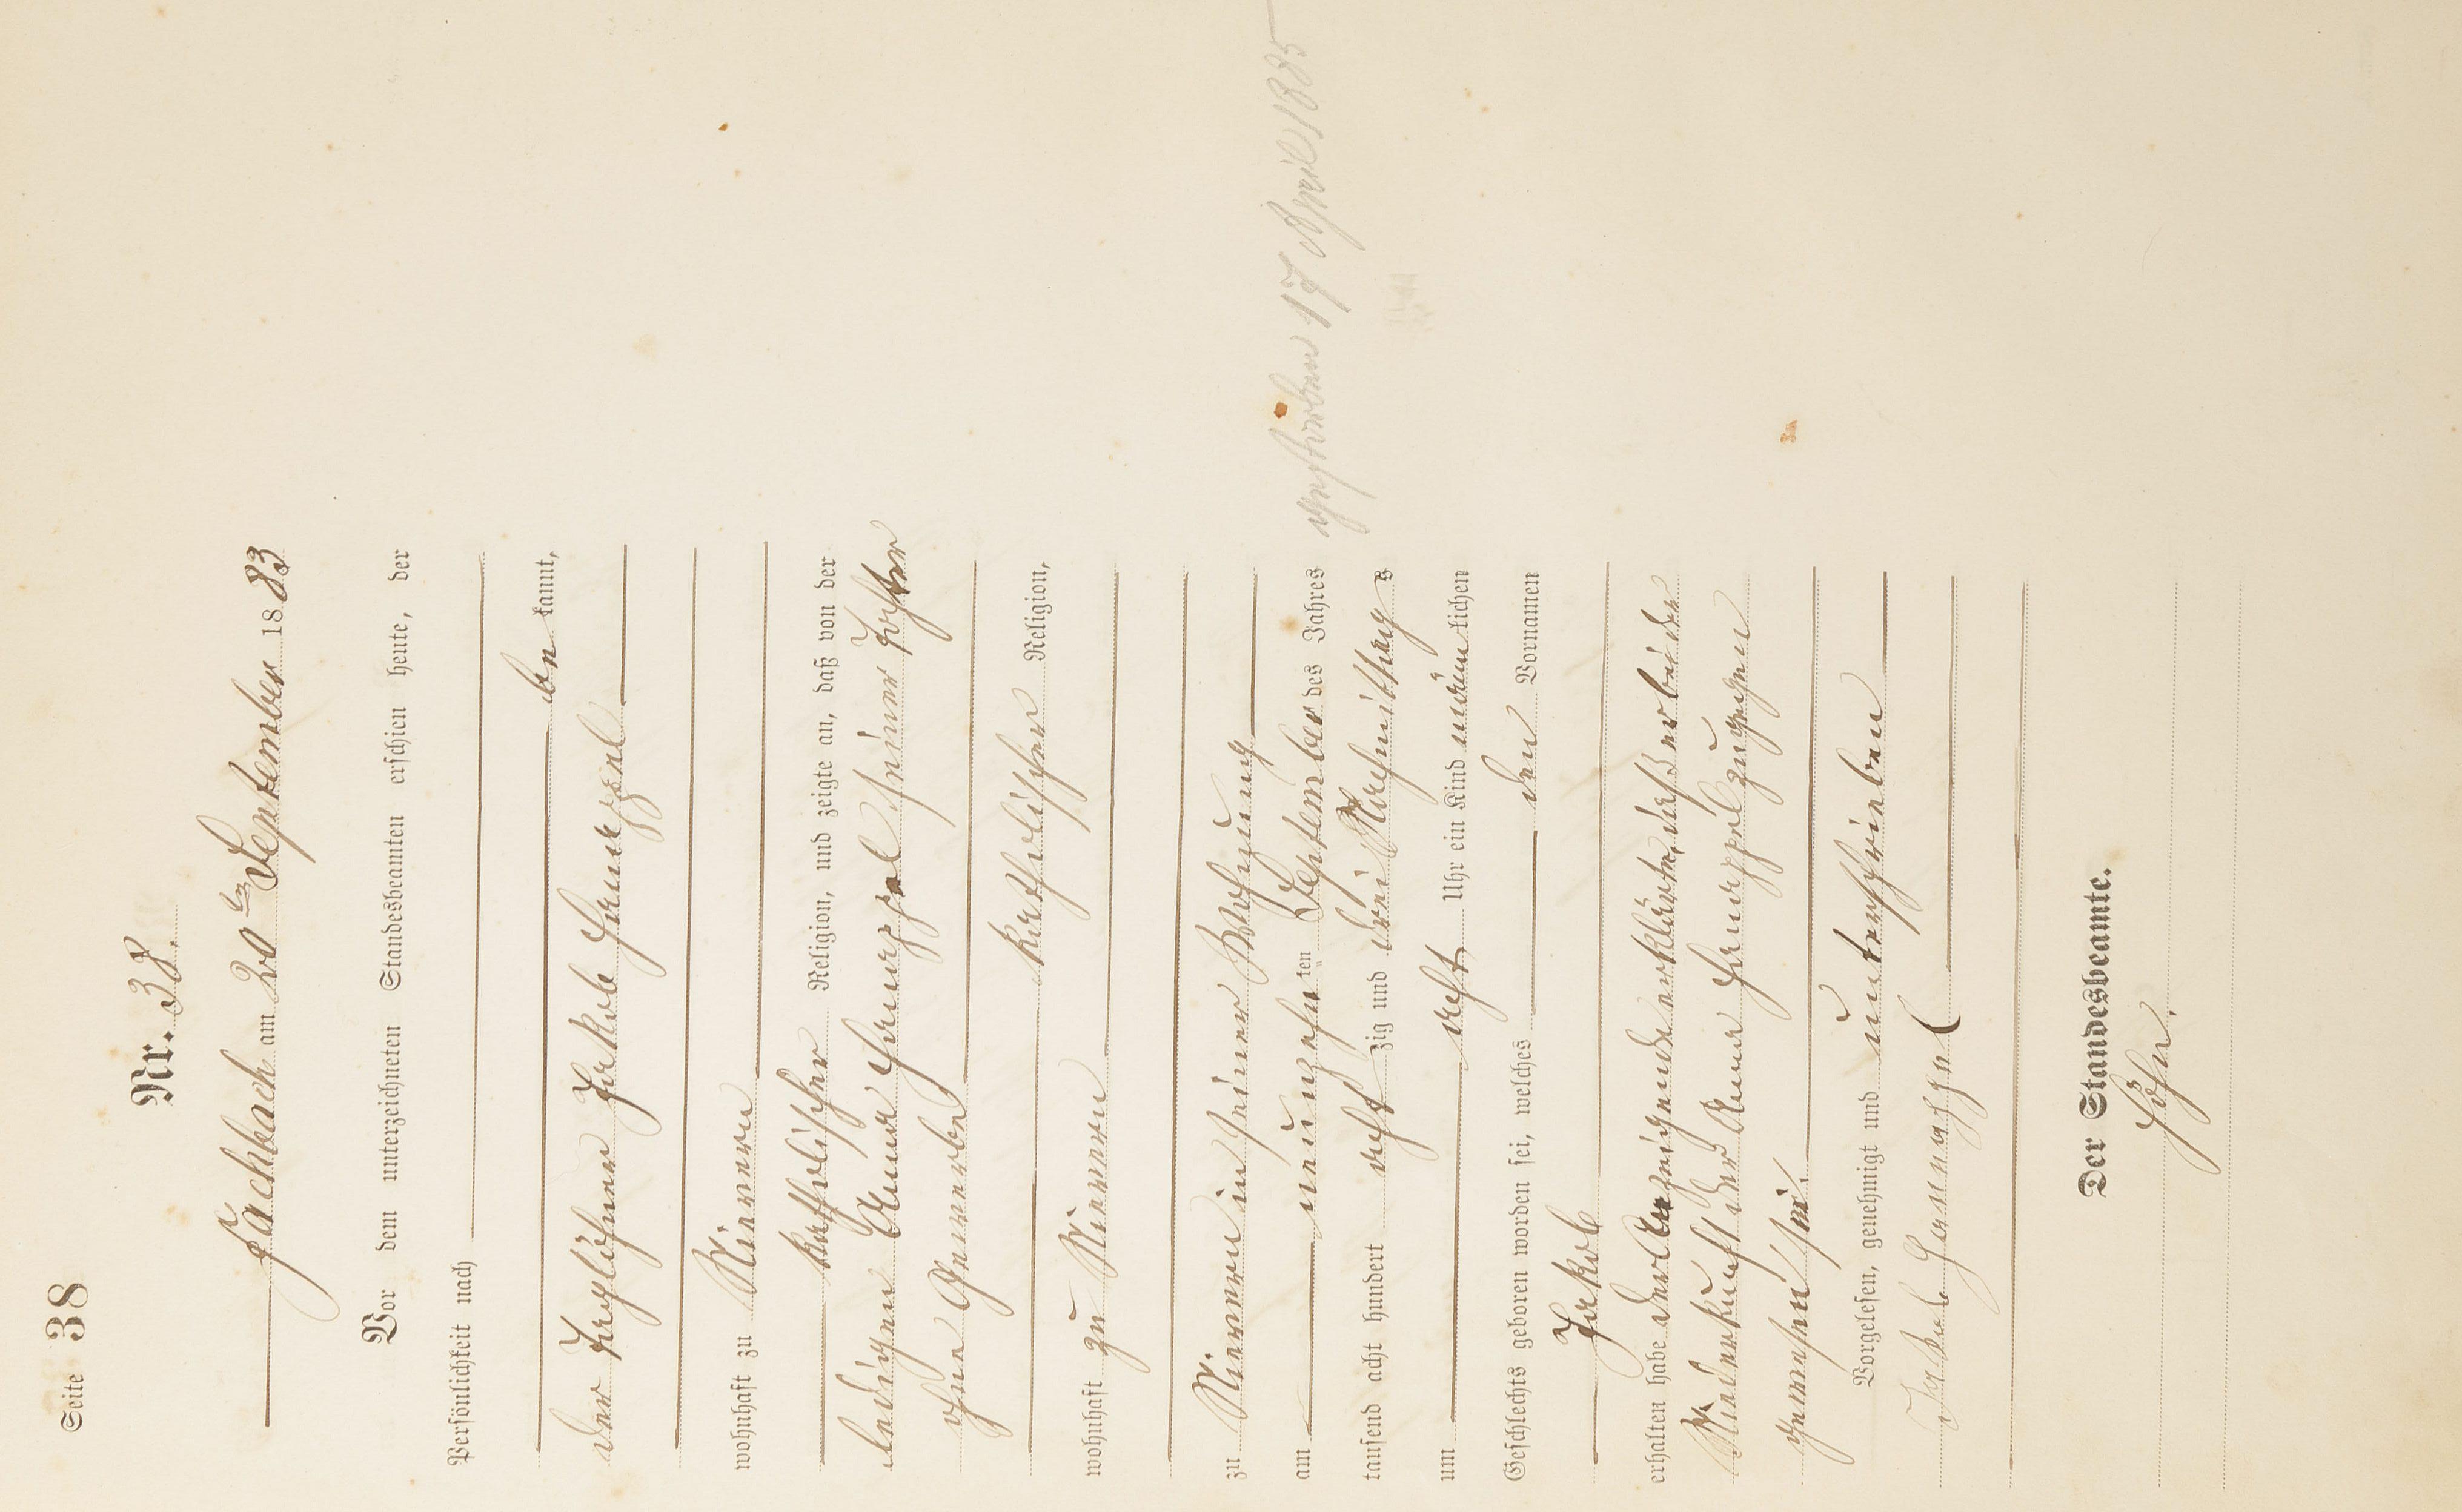 Seite 38
Nr. 38.
Fachbach am 20ten September 1883
Vor dem unterzeichneten Standesbeamten erschien heute, der
Persönlichkeit nach
be kannt,
der Taglöhner Jakob Hauppel
wohnhaft zu Nievern
katholischer Religion, und zeigte an, daß von der
ledigen Anna Hauppel seiner Tochter
ohne Gewerbe
katholischer Religion,
wohnhaft zu Nievern
zu Nievern in seiner Wohnung
am neunzehnten September des Jahres
tausend acht hundert acht zig und drei Nachmittags
um acht Uhr ein Kind männlichen
Geschlechts geboren worden sei, welches den Vornamen
Jakob
erhalten habe der Anzeigende erklärte, daß er bei der
Niederkunft der Anna Hauppel zugegen
gewesen sei.
Vorgelesen, genehmigt und unterschrieben
Jakob
Der Standesbeamte.
Höhn.
gestorben 17 April 1885